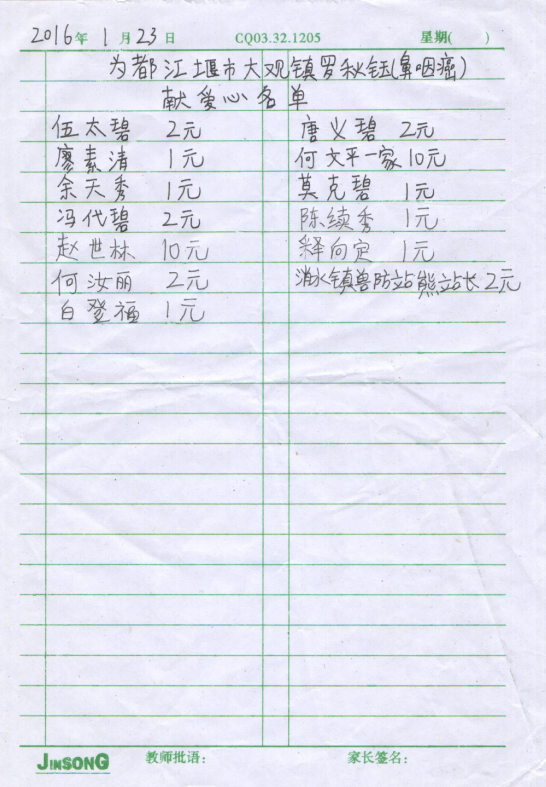 2016年 1月23日 CQ03.32.1205 星期( )
为都江堰市大观镇罗秋钰(鼻咽癌)
献爱心名单
伍太碧 2元 唐义碧 2元
廖素清 1元 何文平一家10元
余天秀 1元 莫克碧 1元
冯代碧 2元 陈续秀 1元
赵世林 10元 释向定 1元
何汝丽 2元 消水镇兽防站熊站长2元
白登福 1元
JINSONG 教师批语: 家长签名: